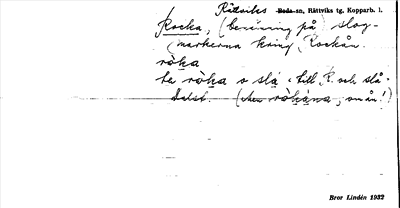 Rättviks Boda sn, Rättviks tg. Kopparb. l.
Rocka, (benäming på) slog-
(markerna kring Rockån.
ròka
te ròka o slå, till R. och slå.
(men ròkåna, om ån!)
Bror Lindén 1932